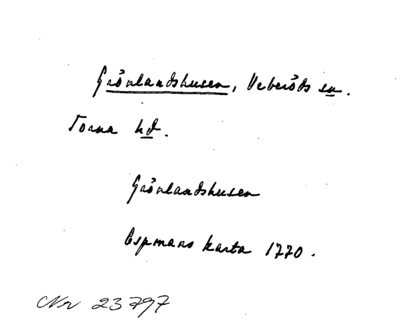 Grönlandshusen, Veberöds sn.
Torna hd.
Grönlandshusen
Espmans karta 1770.
Nr 23797